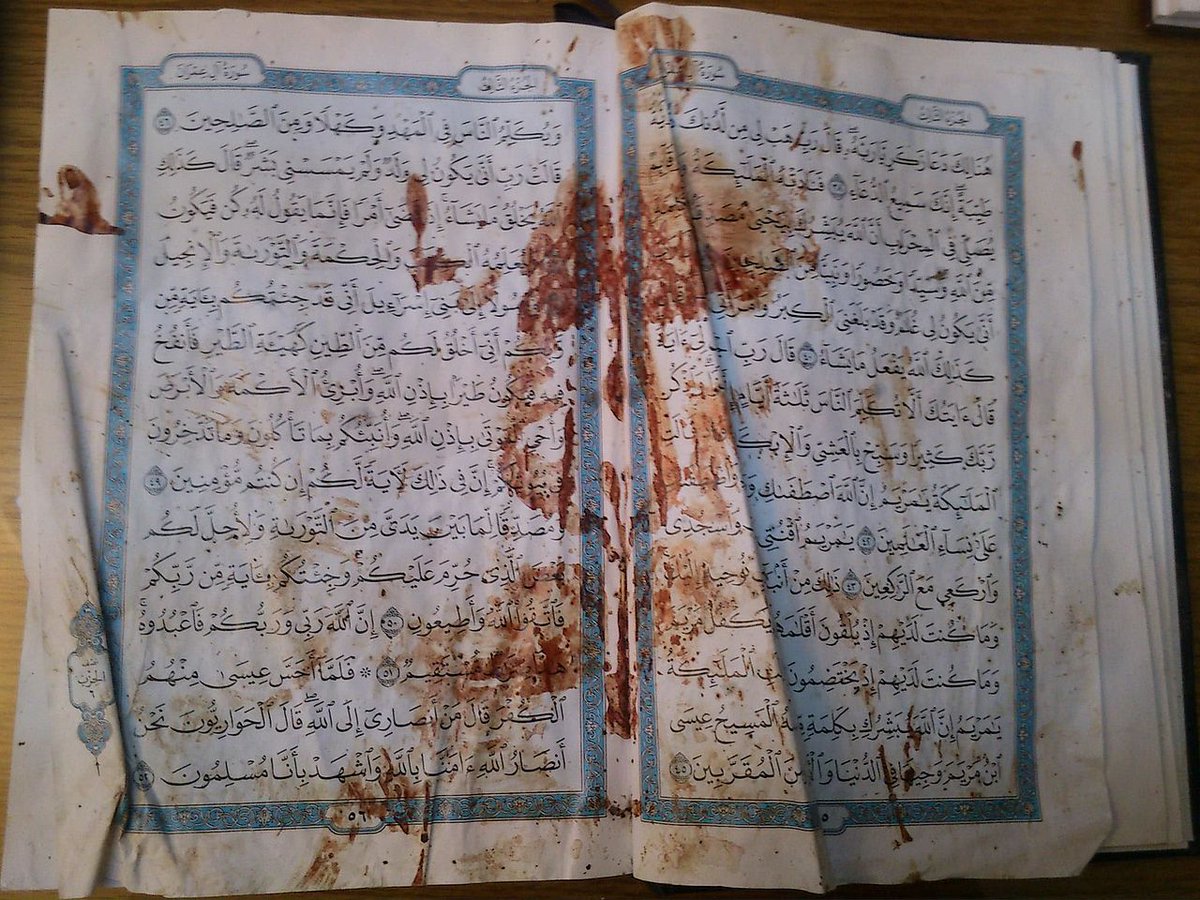 الجزء الثالث سورة آل عمران
هُنَالِكَ دَعَا زَكَرِيَّا رَبَّهُۥۖ قَالَ رَبِّ هَبْ لِى مِن لَّدُنكَ ذُرِّيَّةً
طَيِّبَةًۖ إِنَّكَ سَمِيعُ ٱلدُّعَآءِ ٣٨ فَنَادَتْهُ ٱلْمَلَٰٓئِكَةُ وَهُوَ قَآئِمٌ
يُصَلِّى فِى ٱلْمِحْرَابِ أَنَّ ٱللَّهَ يُبَشِّرُكَ بِيَحْيَىٰ مُصَدِّقًۢا بِكَلِمَةٍ
مِّنَ ٱللَّهِ وَسَيِّدًا وَحَصُورًا وَنَبِيًّا مِّنَ ٱلصَّٰلِحِينَ
أَنَّىٰ يَكُونُ لِى غُلَٰمٌ وَقَدْ بَلَغَنِىَ ٱلْكِبَرُ وَٱمْرَأَتِى
كَذَٰلِكَ ٱللَّهُ يَفْعَلُ مَا يَشَآءُ ٤٠ قَالَ رَبِّ ٱجْعَل لِّىٓ ءَايَةً
قَالَ ءَايَتُكَ أَلَّا تُكَلِّمَ ٱلنَّاسَ ثَلَٰثَةَ أَيَّامٍ إِلَّا رَمْزًا وَٱذْكُر
رَّبَّكَ كَثِيرًا وَسَبِّحْ بِٱلْعَشِىِّ وَٱلْإِبْكَٰرِ
ٱلْمَلَٰٓئِكَةُ يَٰمَرْيَمُ إِنَّ ٱللَّهَ ٱصْطَفَىٰكِ وَطَهَّرَكِ وَٱصْطَفَىٰكِ
عَلَىٰ نِسَآءِ ٱلْعَٰلَمِينَ ٤٢ يَٰمَرْيَمُ ٱقْنُتِى وَٱسْجُدِى
وَٱرْكَعِى مَعَ ٱلرَّٰكِعِينَ ٤٣ ذَٰلِكَ مِنْ أَنۢبَآءِ نُوحِيهِ إِلَيْكَ
وَمَا كُنتَ لَدَيْهِمْ إِذْ يُلْقُونَ أَقْلَٰمَهُمْ يَكْفُلُ مَرْيَمَ
وَمَا كُنتَ لَدَيْهِمْ إِذْ يَخْتَصِمُونَ ٱلْمَلَٰٓئِكَةُ
يَٰمَرْيَمُ إِنَّ ٱللَّهَ يُبَشِّرُكِ بِكَلِمَةٍ مِّنْهُ ٱلْمَسِيحُ عِيسَى
ٱبْنُ مَرْيَمَ وَجِيهًا فِى ٱلدُّنْيَا وَٱلْءَاخِرَةِ وَمِنَ ٱلْمُقَرَّبِينَ ٤٥
الجزء الثالث سورة آل عمران
وَيُكَلِّمُ ٱلنَّاسَ فِى ٱلْمَهْدِ وَكَهْلًا وَمِنَ ٱلصَّٰلِحِينَ ٤٦
قَالَتْ رَبِّ أَنَّىٰ يَكُونُ لِى وَلَدٌ وَلَمْ يَمْسَسْنِى بَشَرٌۖ قَالَ كَذَٰلِكِ
ٱللَّهُ يَخْلُقُ مَا يَشَآءُۚ إِذَا قَضَىٰٓ أَمْرًا فَإِنَّمَا يَقُولُ لَهُۥ كُن فَيَكُونُ
وَيُعَلِّمُهُ ٱلْكِتَٰبَ وَٱلْحِكْمَةَ وَٱلتَّوْرَىٰةَ وَٱلْإِنجِيلَ
وَرَسُولًا إِلَىٰ بَنِىٓ إِسْرَٰٓءِيلَ أَنِّى قَدْ جِئْتُكُم بِـَٔايَةٍ مِّن
رَّبِّكُمْ أَنِّىٓ أَخْلُقُ لَكُم مِّنَ ٱلطِّينِ كَهَيْـَٔةِ ٱلطَّيْرِ فَأَنفُخُ
فِيهِ فَيَكُونُ طَيْرًۢا بِإِذْنِ ٱللَّهِۖ وَأُبْرِئُ ٱلْأَكْمَهَ وَٱلْأَبْرَصَ
وَأُحْىِ ٱلْمَوْتَىٰ بِإِذْنِ ٱللَّهِۖ وَأُنَبِّئُكُم بِمَا تَأْكُلُونَ وَمَا تَدَّخِرُونَ
فِى بُيُوتِكُمْۚ إِنَّ فِى ذَٰلِكَ لَءَايَةً لَّكُمْ إِن كُنتُم مُّؤْمِنِينَ ٤٩
وَمُصَدِّقًا لِّمَا بَيْنَ يَدَىَّ مِنَ ٱلتَّوْرَىٰةِ وَلِأُحِلَّ لَكُم
بَعْضَ ٱلَّذِى حُرِّمَ عَلَيْكُمْۚ وَجِئْتُكُم بِـَٔايَةٍ مِّن رَّبِّكُمْ
فَٱتَّقُوا۟ ٱللَّهَ وَأَطِيعُونِ ٥٠ إِنَّ ٱللَّهَ رَبِّى وَرَبُّكُمْ فَٱعْبُدُوهُۗ
هَٰذَا مُّسْتَقِيمٌ ٥١ ۞ فَلَمَّآ أَحَسَّ عِيسَىٰ مِنْهُمُ
ٱلْكُفْرَ قَالَ مَنْ أَنصَارِىٓ إِلَى ٱللَّهِۖ قَالَ ٱلْحَوَارِيُّونَ نَحْنُ
أَنصَارُ ٱللَّهِ ءَامَنَّا بِٱللَّهِ وَٱشْهَدْ بِأَنَّا مُسْلِمُونَ ٥٢
الحزب
٦
٥٦